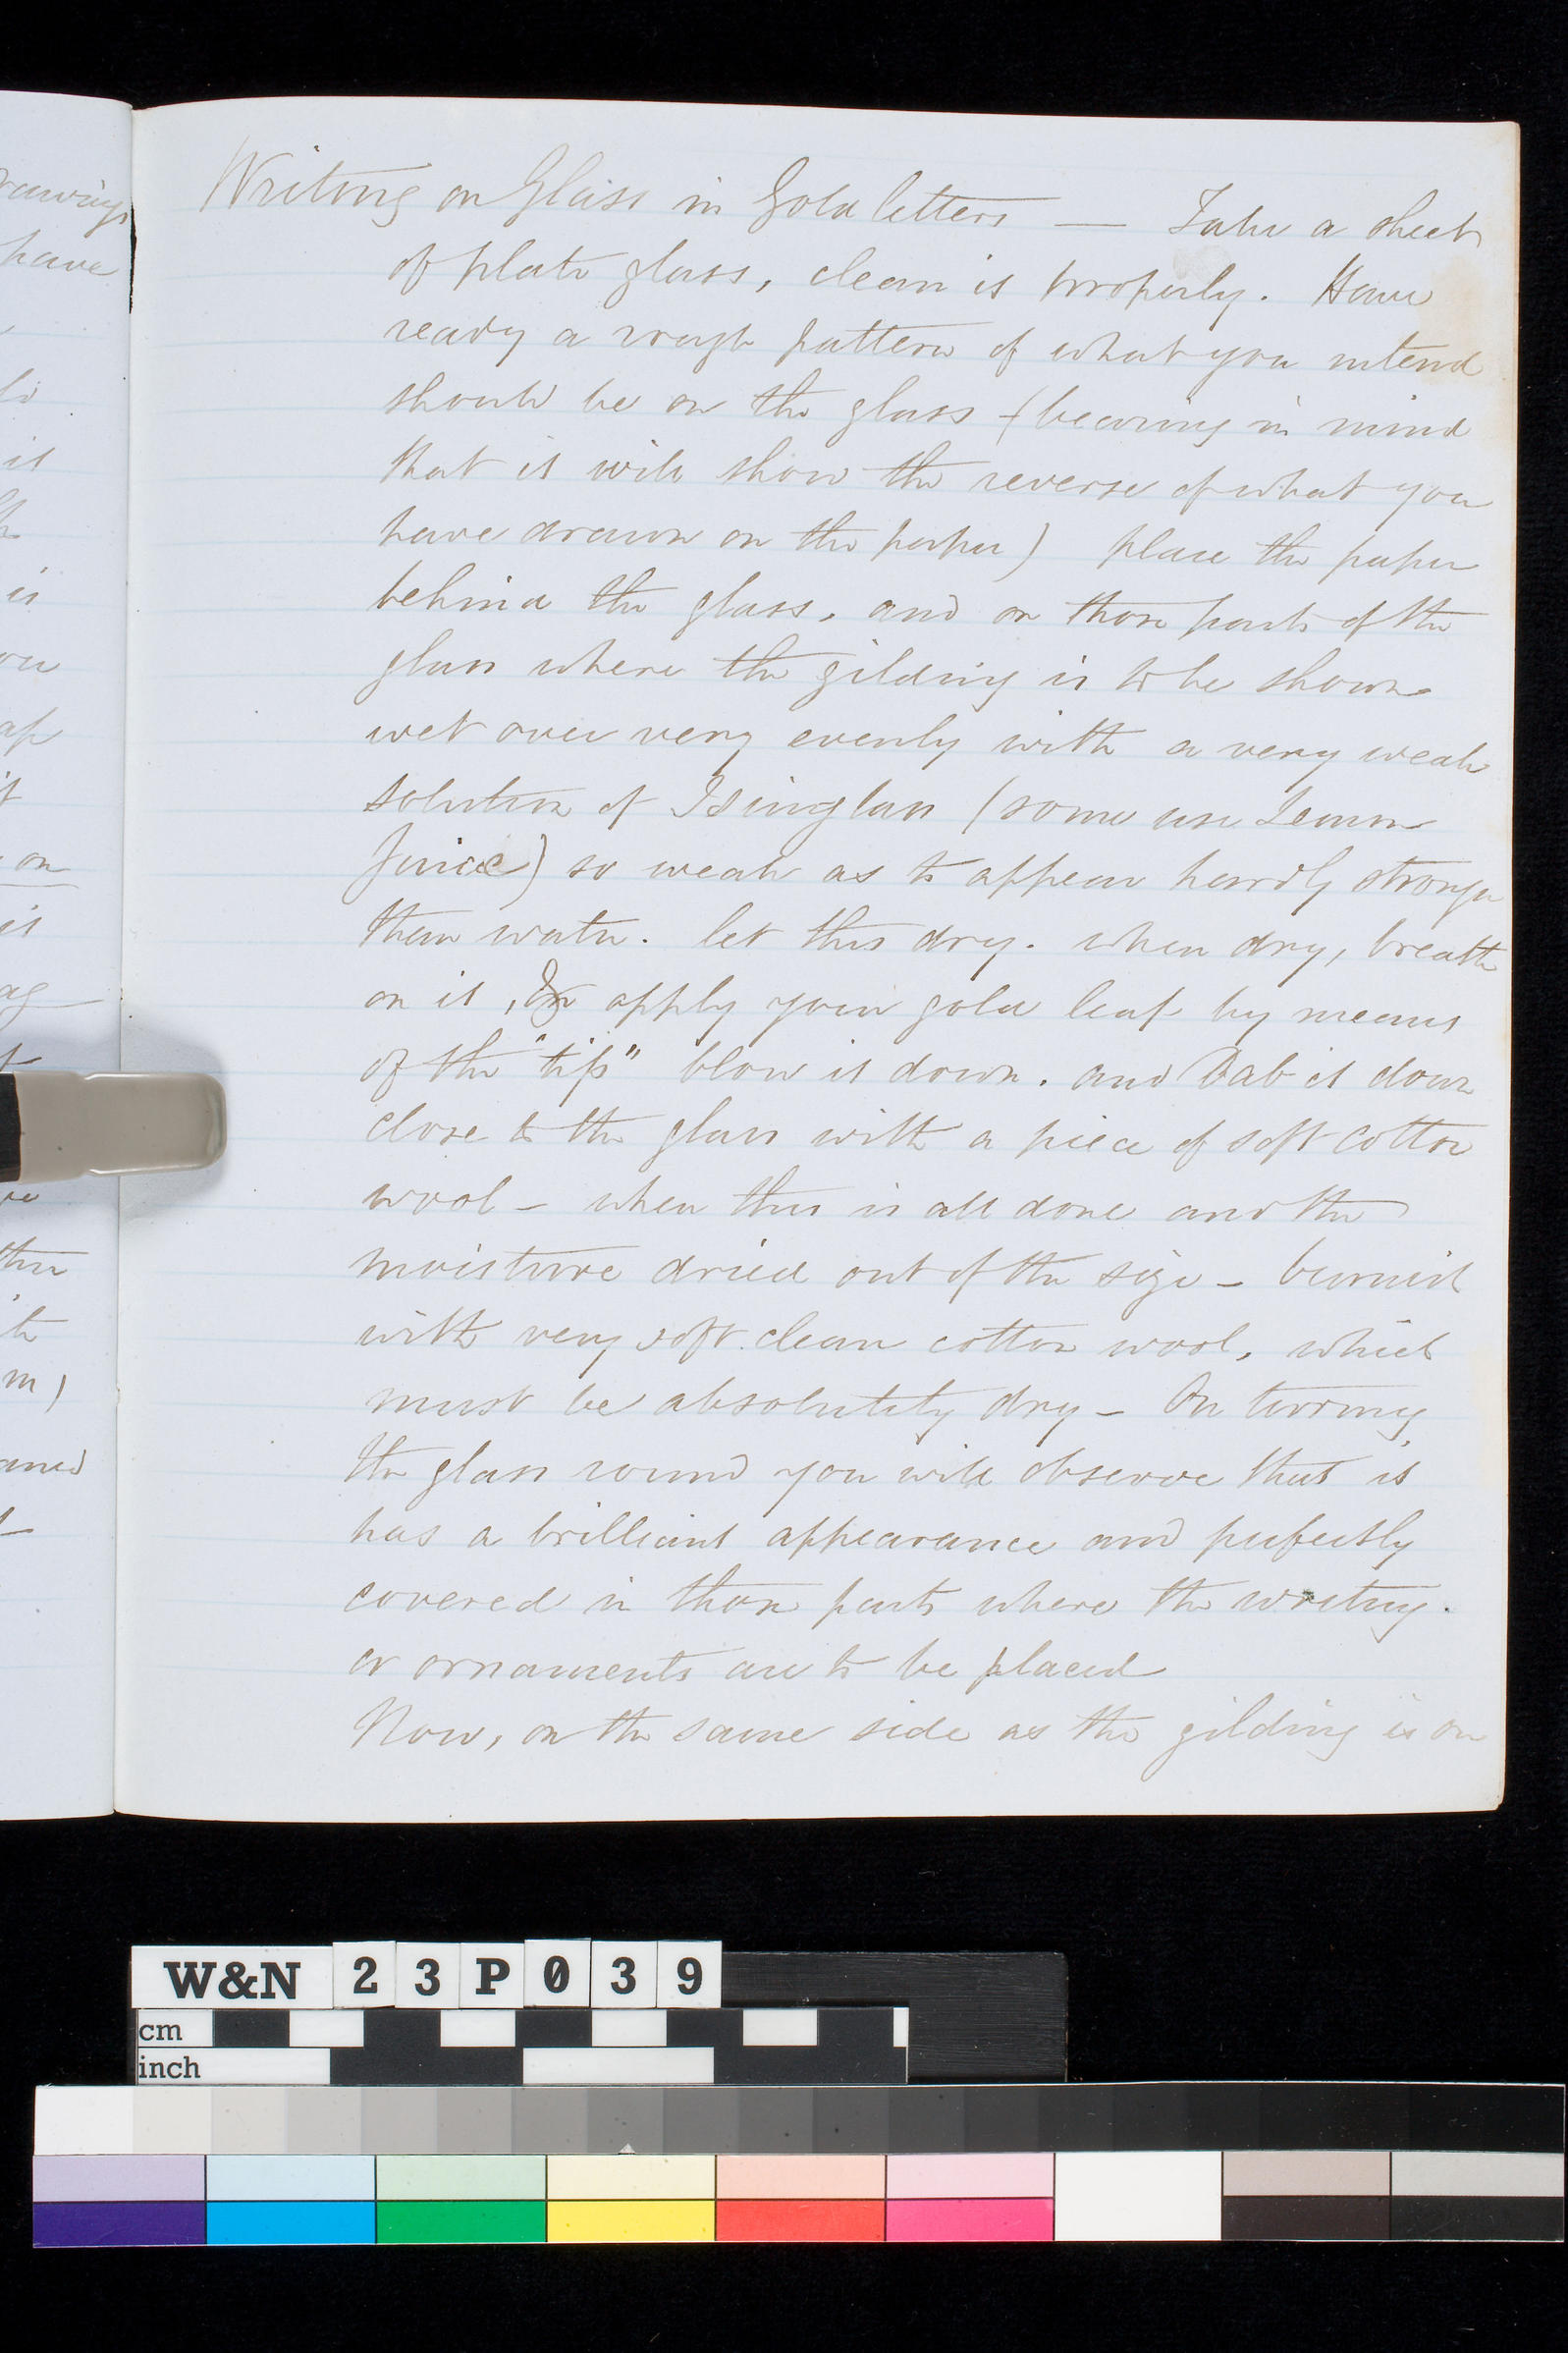 Writing on Glass in Gold letters — Take a sheet
of plate glass, clean it properly. Have
ready a rough pattern of what you intend
should be on the glass (bearing in mind
that it will show the reverse of what you
have drawn on the paper) place the paper
behind the glass, and on those parts of the
glass where the gilding is to be shown
wet over very evenly with a very weak
solution of Isinglass (some use Lemon
Juice) so weak as to appear hardly stronger
than water. let this dry. when dry, breath
on it, & apply your gold leaf by means
of the "tip" blow it down. and Dab it down
close to the glass with a piece of soft cotton
wool – when this is all done and the
moisture dried out of the size – burnish
with very soft clean cotton wool, which
must be absolutely dry – On turning
the glass round you will observe that it
has a brilliant appearance and perfectly
covered in those parts where the writing.
or ornaments are to be placed
Now, on the same side as the gilding is on
rawings
have
is
on
W&N 23P039
cm
inch